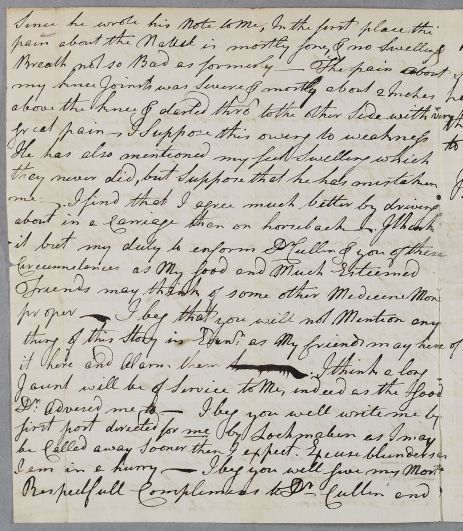 Since he wrote his Note to Me, In the first place the
pain about the Navel is mostly gone, & no Swelling
Breath not so Bad as formerly — The pain about
my knee Joints was Severe & mostly about 2 Inches
above the knee & darted thro' to the other Side with very
great pain, I Suppose this owing to weakness
He has also mentioned my feet Swelling which
they never did, but Suppose that he has mistaken
me — I find that I agree much better by driving
about in a Carriage than on horseback — I think
it but my duty to enform Dr Cullen & you of these
Circumstances as My Good and Much Esteemed
Friends may think of some other Medecine More
proper — I beg that you will not Mention any
thing of this Story in Edinr. as My friends may here of
it here and Alarm them I think a long
Jaunt will be of Service to Me, indeed as the Good
Dr. advised me to — I beg you well write me by
first post directed for me by Lochmaben as I may
be Called away Sooner then I expect. Excuse blunders as
I am in a hurry — I beg you well give my Most
Respectfull Complements to Dr. Cullin and